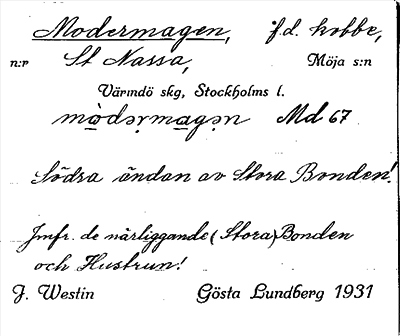 Modermagen, f.d. kobbe,
n:r St Nassa, Möja s:n
Värmdö skg, Stockholms l.
mòdərmagən Md 67
Södra ändan av Stora Bonden!
Jmfr. de närliggande (Stora) Bonden
och Hustrun!
J. Westin Gösta Lundberg 1931